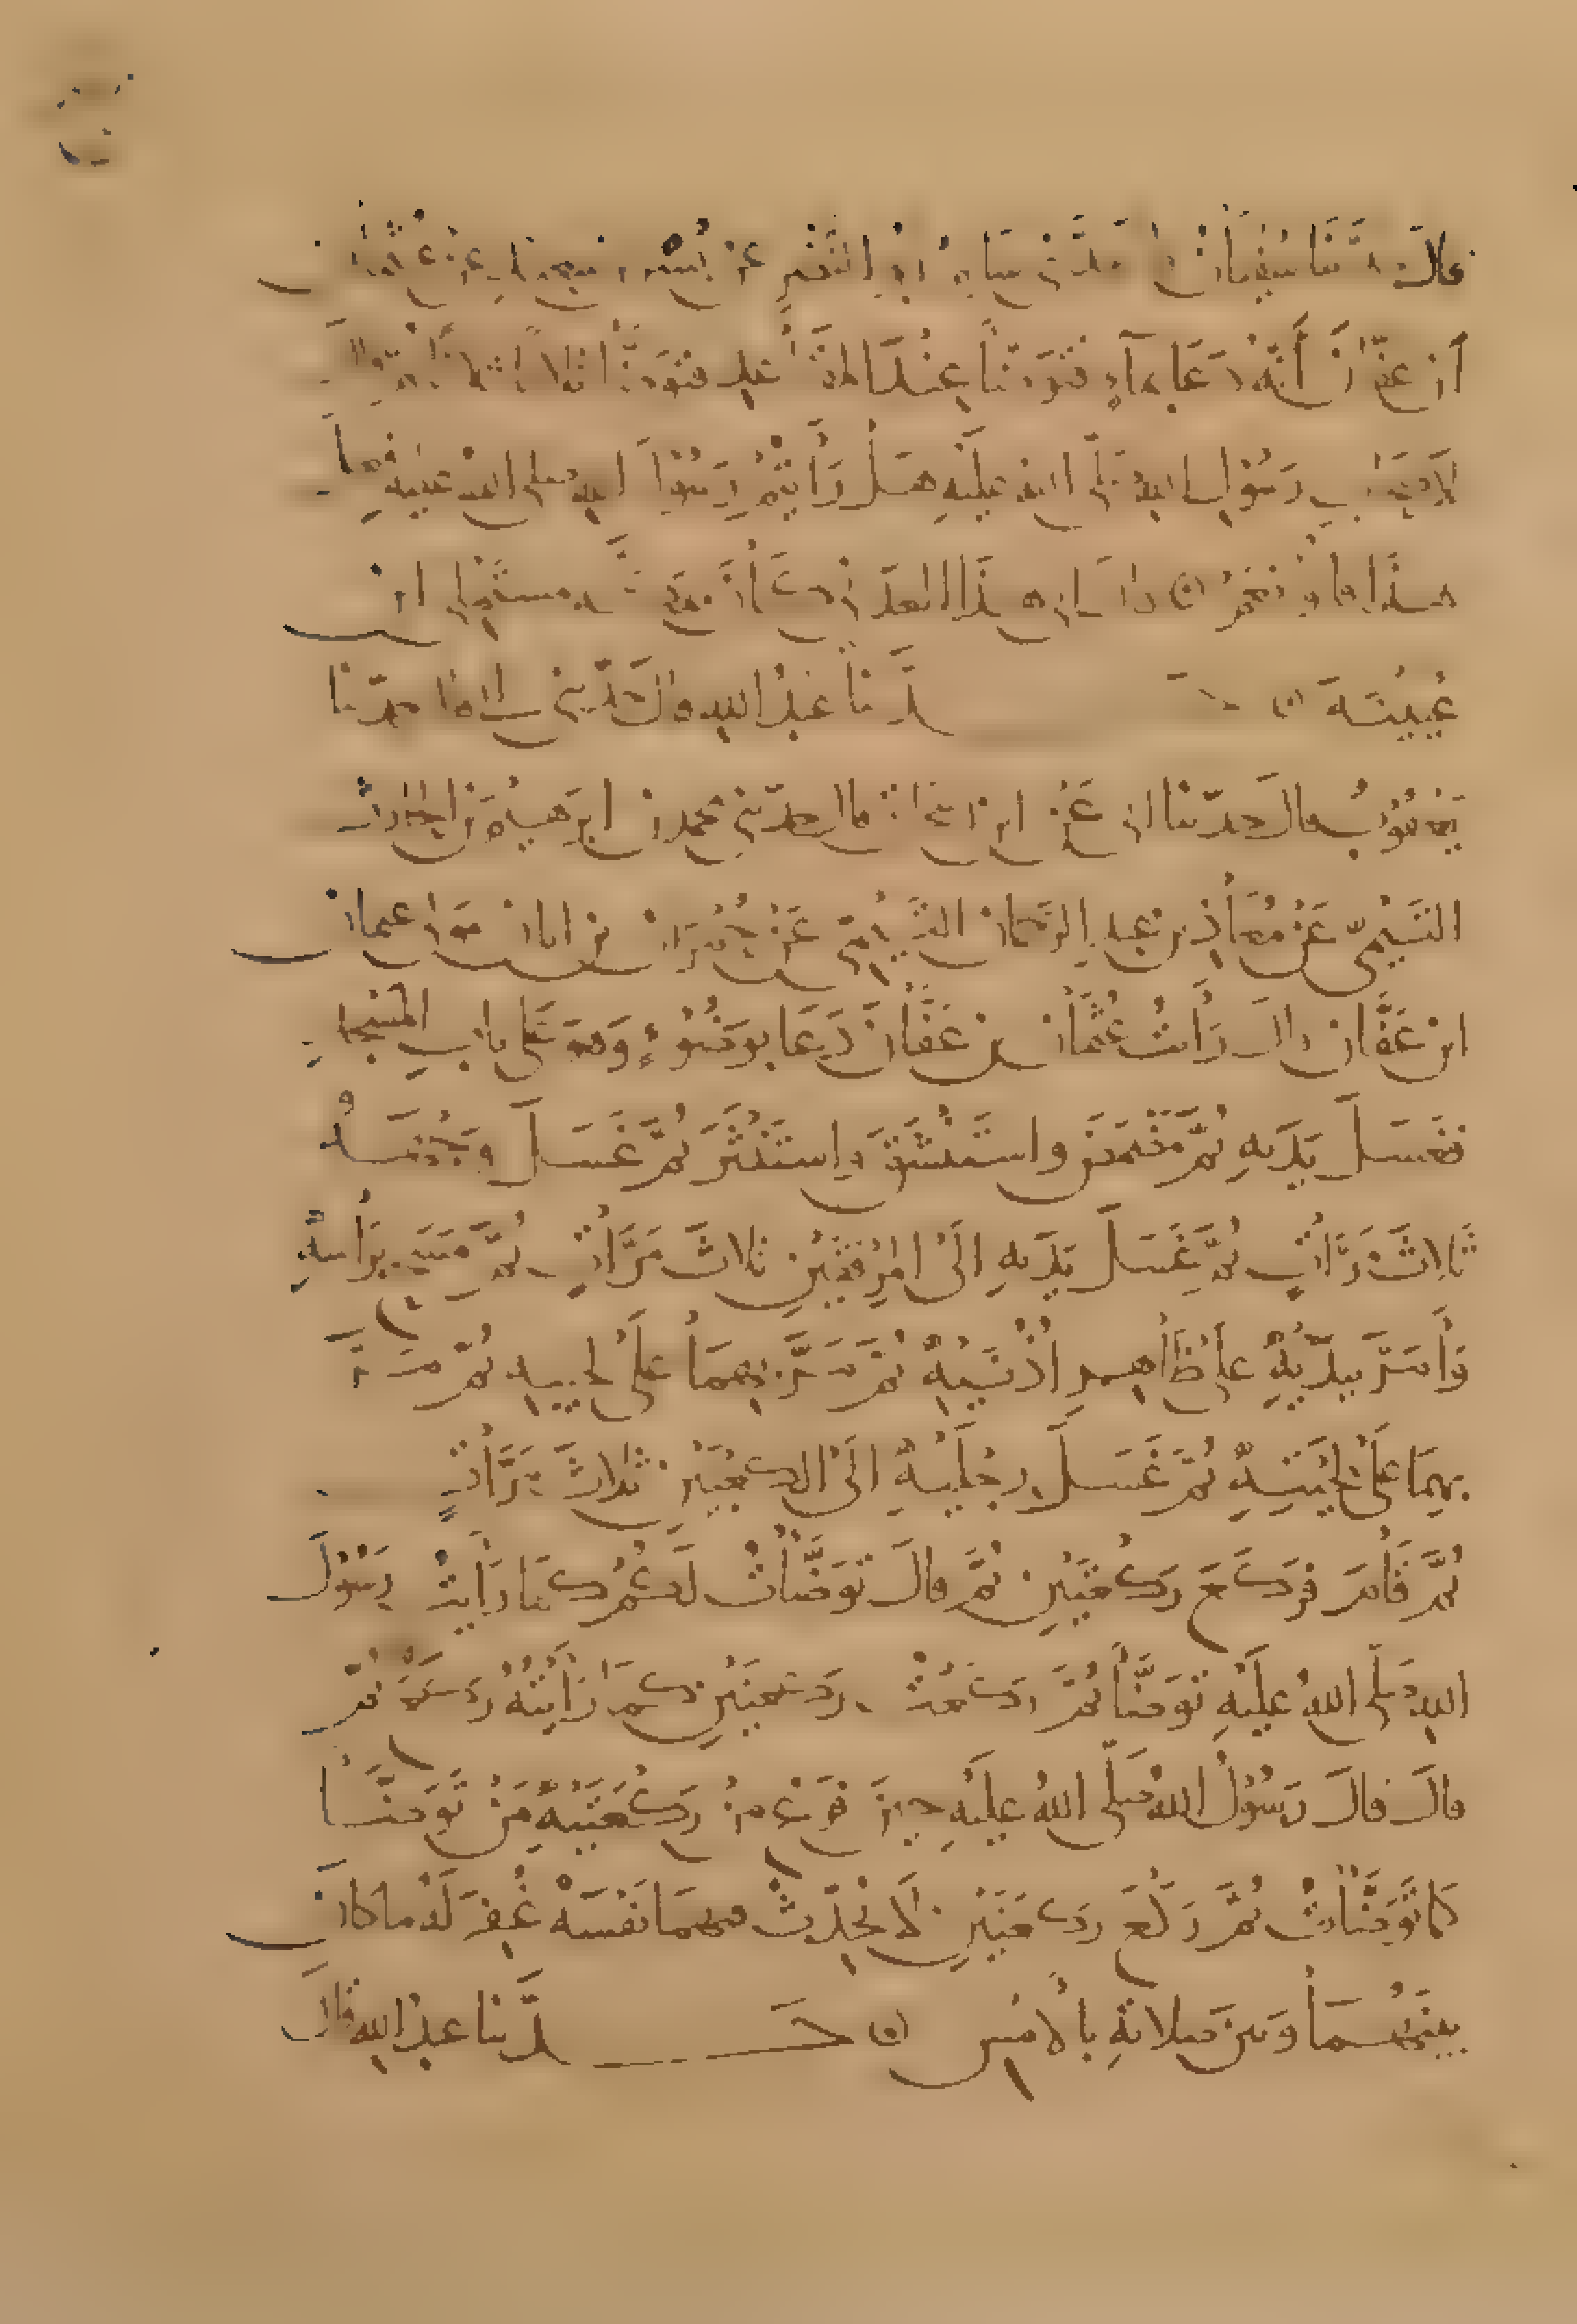 قالَ حدَّثنا سُفيَانُ قال حدَّثني سَالِم أبُو النَّضْرِ عَنْ بُسْر بن سعيد عن عُثمان
ابن عفّان أَنَّهُ دَعَا بمآءٍ فتَوَضّأ عِنْدَ المقَاعِدِ فتوَضّأ ثلاثاً ثلاثاً ثُمّ قالَ
لأصحَاب رسُول الله صَلّى الله عليْهِ هَلْ رَأَيْتُمْ رَسُولَ الله صلى الله عليه فعلَ
هذَا قالوا نعَمْ قال
عُيَيْنَة ه حَدَّثنَا عَبْدُ الله قالَ حَدّثني أبي قال حدّثنا
يَعْقُوْبُ قالَ حدّثنا أبي عَنْ ابن إسحاق قال حدّثني محمد بن ابرَهيْمَ بن الحارث
التَّيْمِيّ عَنْ مُعَاذِ بن عبدِ الرَّحمانِ التَّيْمِيّ عَنْ حُمْرَان بن ابان مَولى عثمان
ابن عَفَّان قالَ رَأيتُ عُثْمَانَ بن عَفَّانَ دَعَا بوَضُوْءٍ وَهوَ عَلى بابِ المسْجدِ
فغَسَلَ يَدَيهِ ثُمَّ مَضْمَضَ واستَنْشَقَ واستَنْثَرَ ثُمَّ غَسَلَ وَجْهَهُ
ثلاثَ مَرَّاتٍ ثُمَّ غَسَلَ يَدَيهِ الَى المِرْفَقَيْنِ ثلاثَ مَرَّاتٍ ثُمَّ مَسَحَ بِرَأسِهِ
وَأَمَرَّ بيَدَيْهِ على ظَاهِرِ اُذُنَيْهِ ثُمَّ مَرَّ بهمَا علَى لحيته ثُمَّ مَرَّ
بهِمَا عَلَى لِحْيَتِهِ ثُمَّ غَسَلَ رِجْلَيْهِ الَى الكعْبَيْنِ ثلاثَ مَرَّاتٍ
ثُمَّ قَامَ فرَكَعَ ركْعَتَيْنِ ثُمَّ قالَ تَوَضَّأْتُ لَكُمْ كمَا رَأَيتُ رَسُوْلَ
اللهِ صَلّى اللهُ عليْهِ تَوَضَّأ ثُمَّ رَكَعْتُ رَكعتَيْنِ كمَا رَأَيْتُهُ رَكَعَ ثُمَّ
قالَ قالَ رَسُوْلُ اللهِ صَلّى اللهُ عليْهِ حِينَ فَرَغ منْ رَكْعَتَيْهِ مَنْ تَوَضَّأ
كمَا تَوَضَّأتُ ثُمَّ رَكَعَ ركعَتَيْنِ لَا يُحَدّثُ فيهمَا نَفْسَهُ غُفِرَ لَهُ ما كانَ
بينَهُمَا وَبين صَلاتِهِ بالأمْسِ ه حَدَّثنا عبدُ اللهِ قالَ